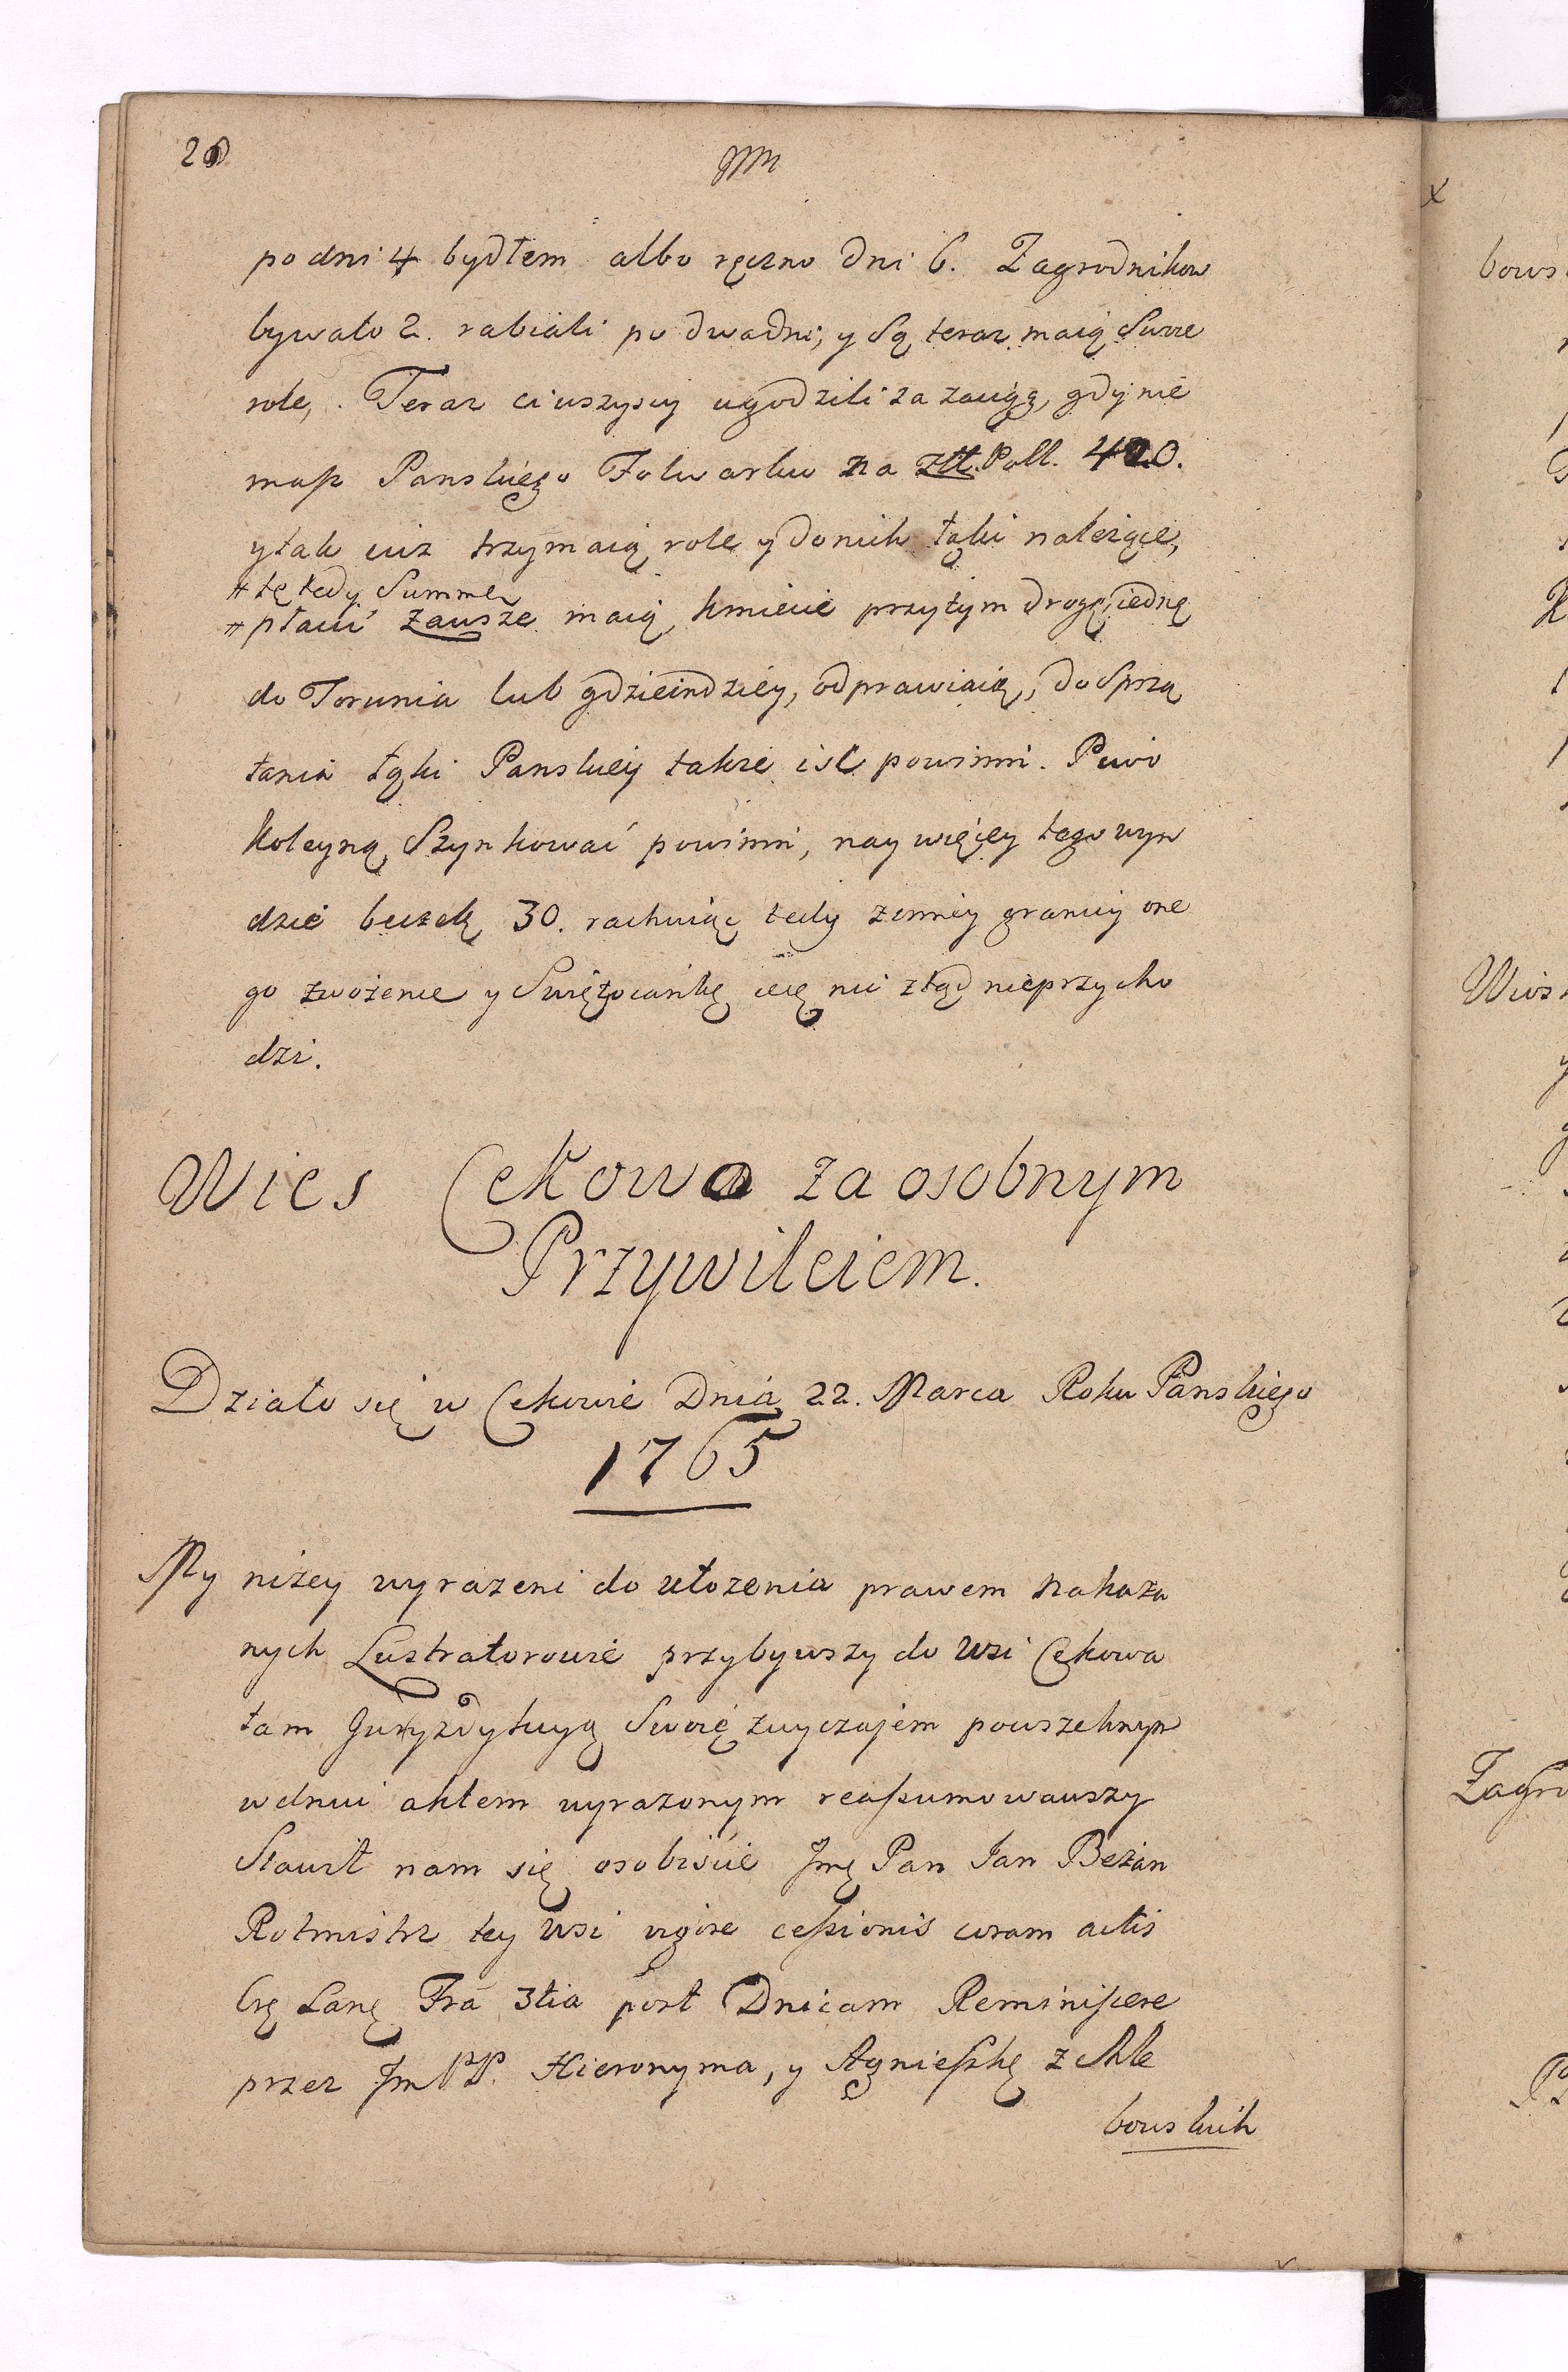 28
po dni 4 bydłem albo ręczno dni 6. Zagrodnikow
bywało 2. rabiali po dwa dni, y są teraz maią Swoie
role, . Teraz ci wszyscy ugodzili za zaciąg, gdy nie
masz Panskiego Folwarku na Złł. Poll. 420.
y tak iuz trzymaią role y do nich łąki należące,
# tę tedy Summę
# płacić zawsze maią, kmiecie przytym drogę, iedną
do Torunia lub gdzieindziey, odprawiaią, do Sprzą
tania łąki Panskiey takze iść powinni. Piwo
koleyną Szynkować powinni, naywięcey tego wyn
dzie beczek 30. rachuiąc tedy z inney granicy one
go zwożenie y nic ztąd nieprzycho
dzi.
Wies Cekowo za osobnym
Przywileiem.
Działo się w Cekowie Dnia 22. Marca Roku Panskiego
1765
My niżey wyrazeni do ułozenia prawem nakaza
nych Lustratorowie przybywszy do wsi Cekowa
tam Juryzdykcyą Swoię zwyczajem powszechnym
w dniu aktem wyrazonym reassumowawszy
Stawił nam się osobiscie Jmę Pan Jan Bezan
Rotmistrz tey wsi vigore cessionis coram actis
Fra 3tia post Dnicam Reminiscere
przez Jm PP. Hieronyma, y Agnieszkę z Chle
bowskich
bows
Wiosk
Zagro